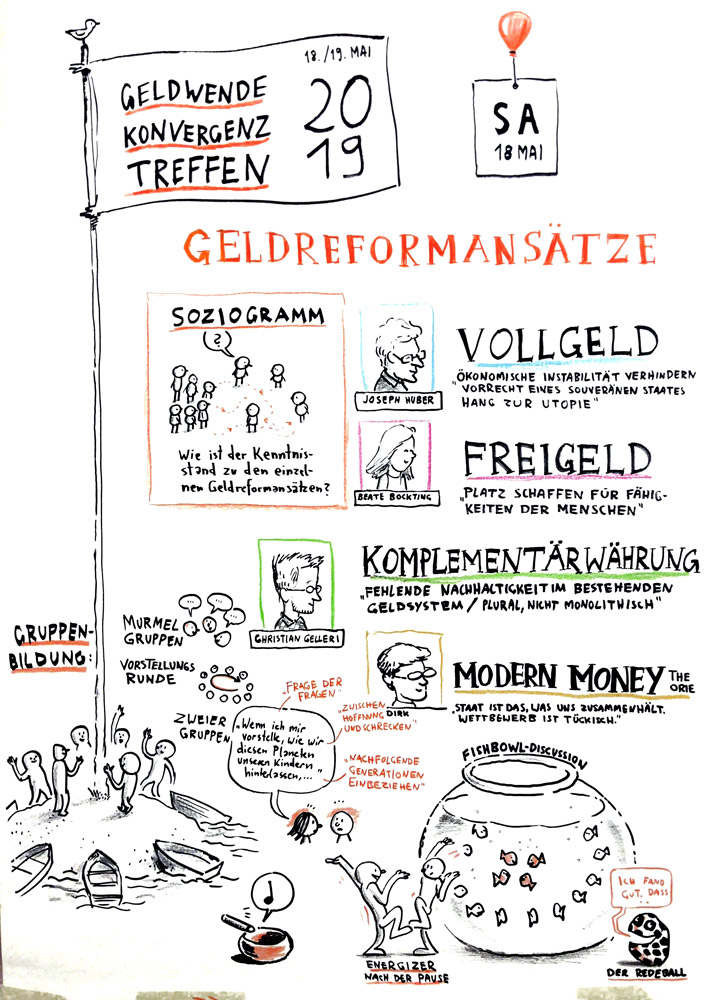 18./19. MAI
GELDWENDE
KONVERGENZ
TREFFEN
20
19
SA
18 MAI
GELDREFORMANSÄTZE
SOZIOGRAMM
?
Wie ist der Kenntnis-
stand zu den einzel-
nen Geldreformansätzen?
JOSEPH HUBER
VOLLGELD
„ÖKONOMISCHE INSTABILITÄT VERHINDERN
VORRECHT EINES SOUVERÄNEN STAATES
HANG ZUR UTOPIE"
BEATE BOCKTING
FREIGELD
„PLATZ SCHAFFEN FÜR FÄHIG-
KEITEN DER MENSCHEN"
CHRISTIAN GELLERI
KOMPLEMENTÄRWÄHRUNG
„FEHLENDE NACHHALTIGKEIT IM BESTEHENDEN
GELDSYSTEM / PLURAL, NICHT MONOLITHISCH"
DIRK
MODERN MONEY THE
ORIE
„STAAT IST DAS, WAS UNS ZUSAMMENHÄLT.
WETTBEWERB IST TÜCKISCH."
GRUPPEN-
BILDUNG:
MURMEL
GRUPPEN
VORSTELLUNGS
RUNDE
ZWEIER
GRUPPEN
„FRAGE DER
FRAGEN"
„Wenn ich mir
vorstelle, wie wir
diesen Planeten
unseren Kindern
hinterlassen,..."
„ZWISCHEN
HOFFNUNG
UND SCHRECKEN"
„NACHFOLGENDE
GENERATIONEN
EINBEZIEHEN"
FISHBOWL-DISCUSSION
ENERGIZER
NACH DER PAUSE
ICH FAND
GUT, DASS
DER REDEBALL